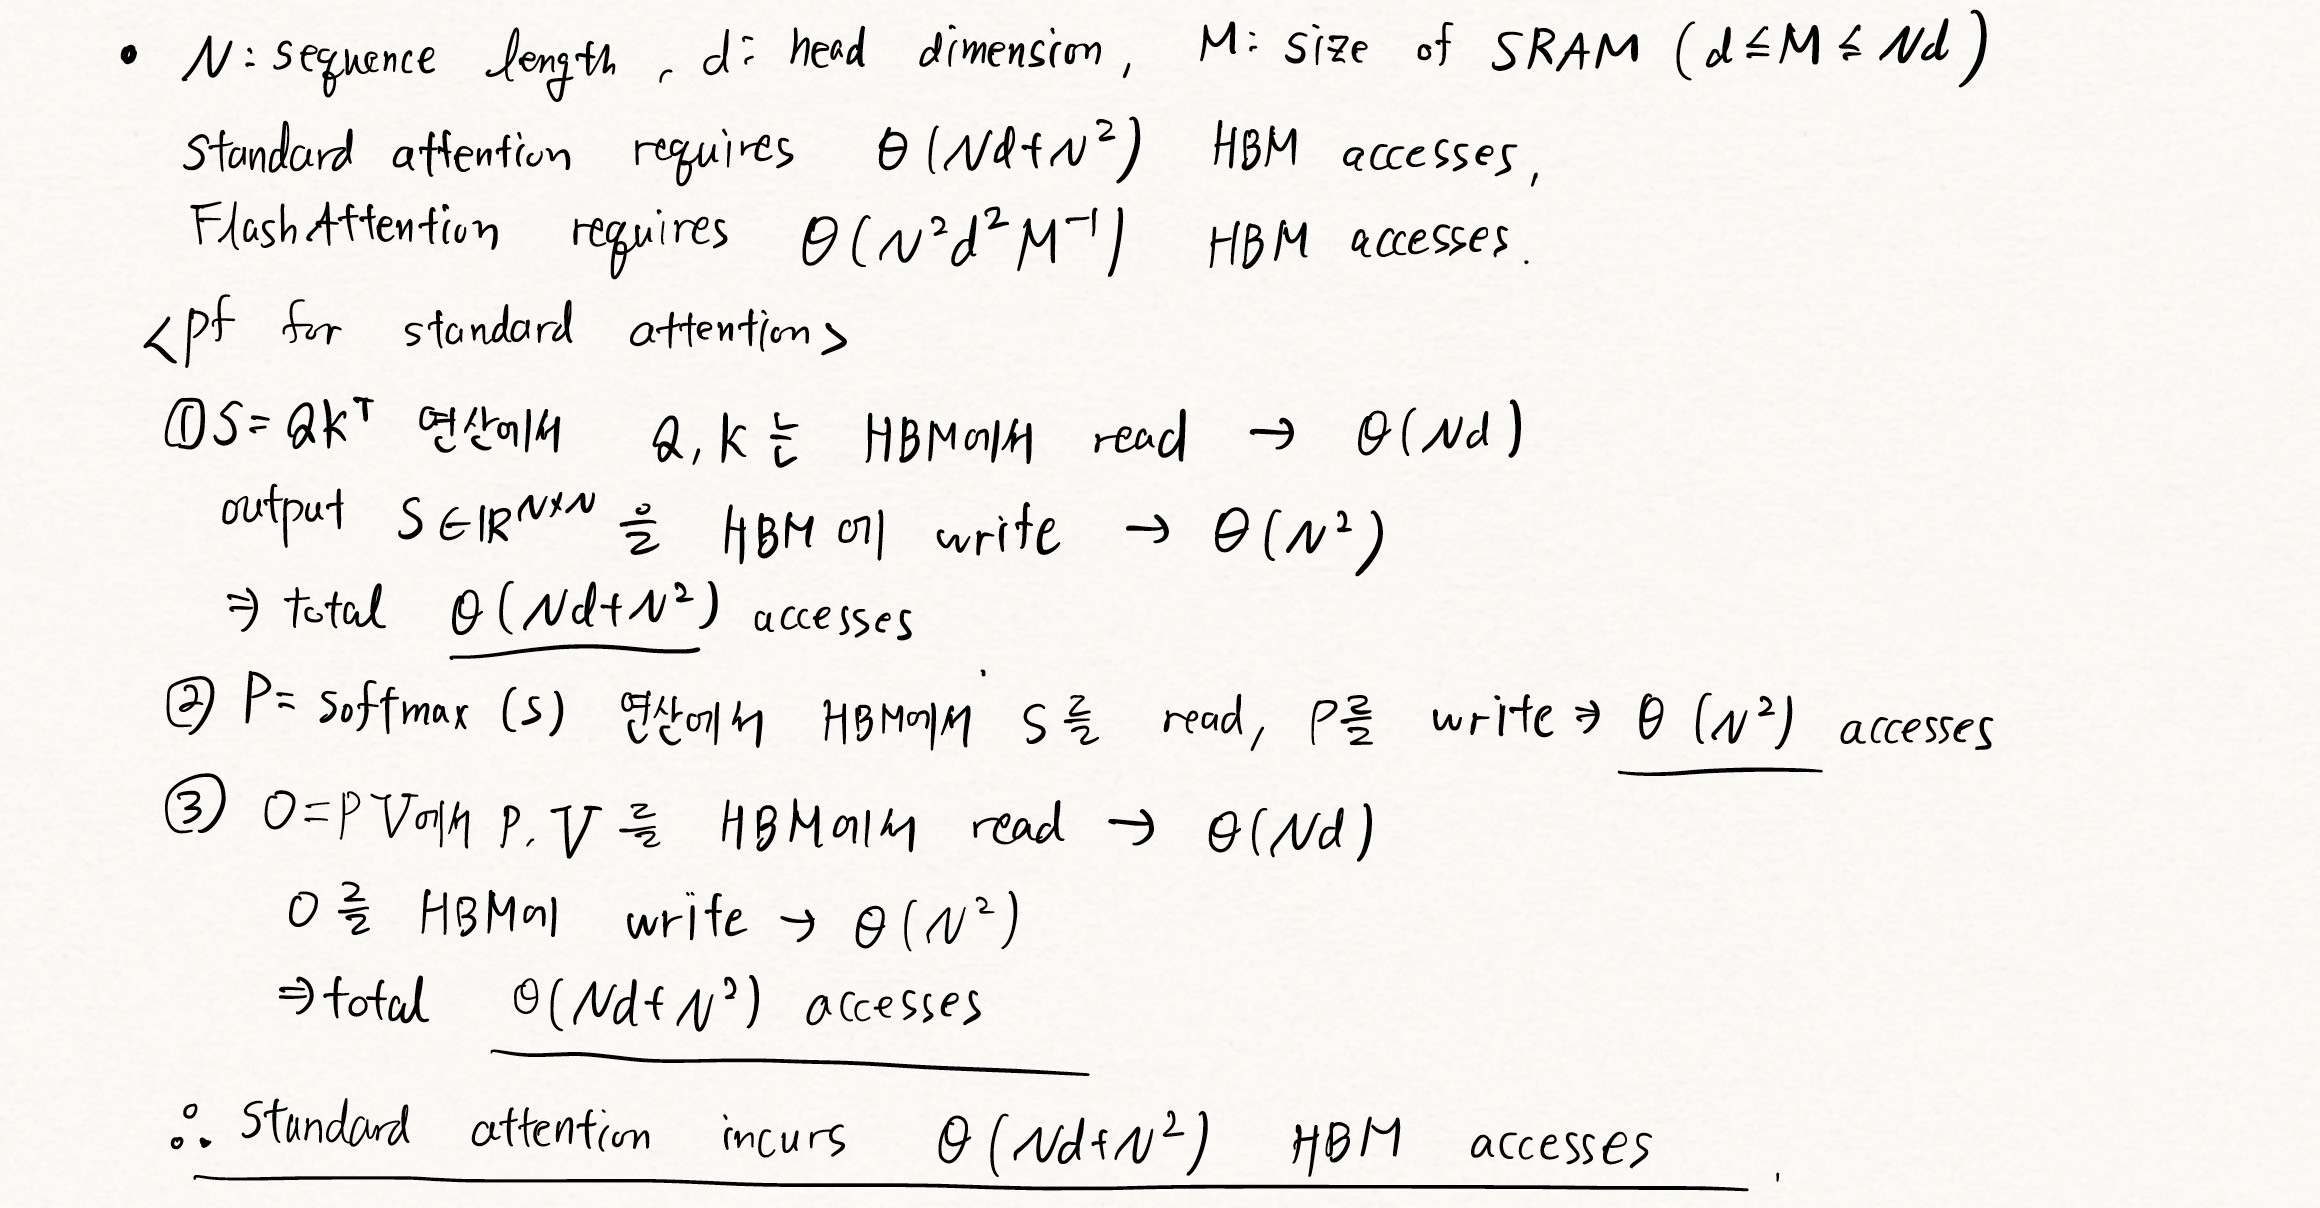 • N: sequence length, d: head dimension, M: size of SRAM (d≤M≤Nd)
Standard attention requires θ(Nd+N²) HBM accesses,
FlashAttention requires θ(N²d²M⁻¹) HBM accesses.
<pf for standard attention>
① S=QKᵀ 연산에서 Q, K는 HBM에서 read → θ(Nd)
output S∈ℝᴺˣᴺ을 HBM에 write → θ(N²)
⇒ total θ(Nd+N²) accesses
② P= softmax (S) 연산에서 HBM에서 S를 read, P를 write ⇒ θ(N²) accesses
③ O=PV에서 P, V를 HBM에서 read → θ(Nd)
O를 HBM에 write → θ(N²)
⇒ total θ(Nd+N²) accesses
∴ Standard attention incurs θ(Nd+N²) HBM accesses.